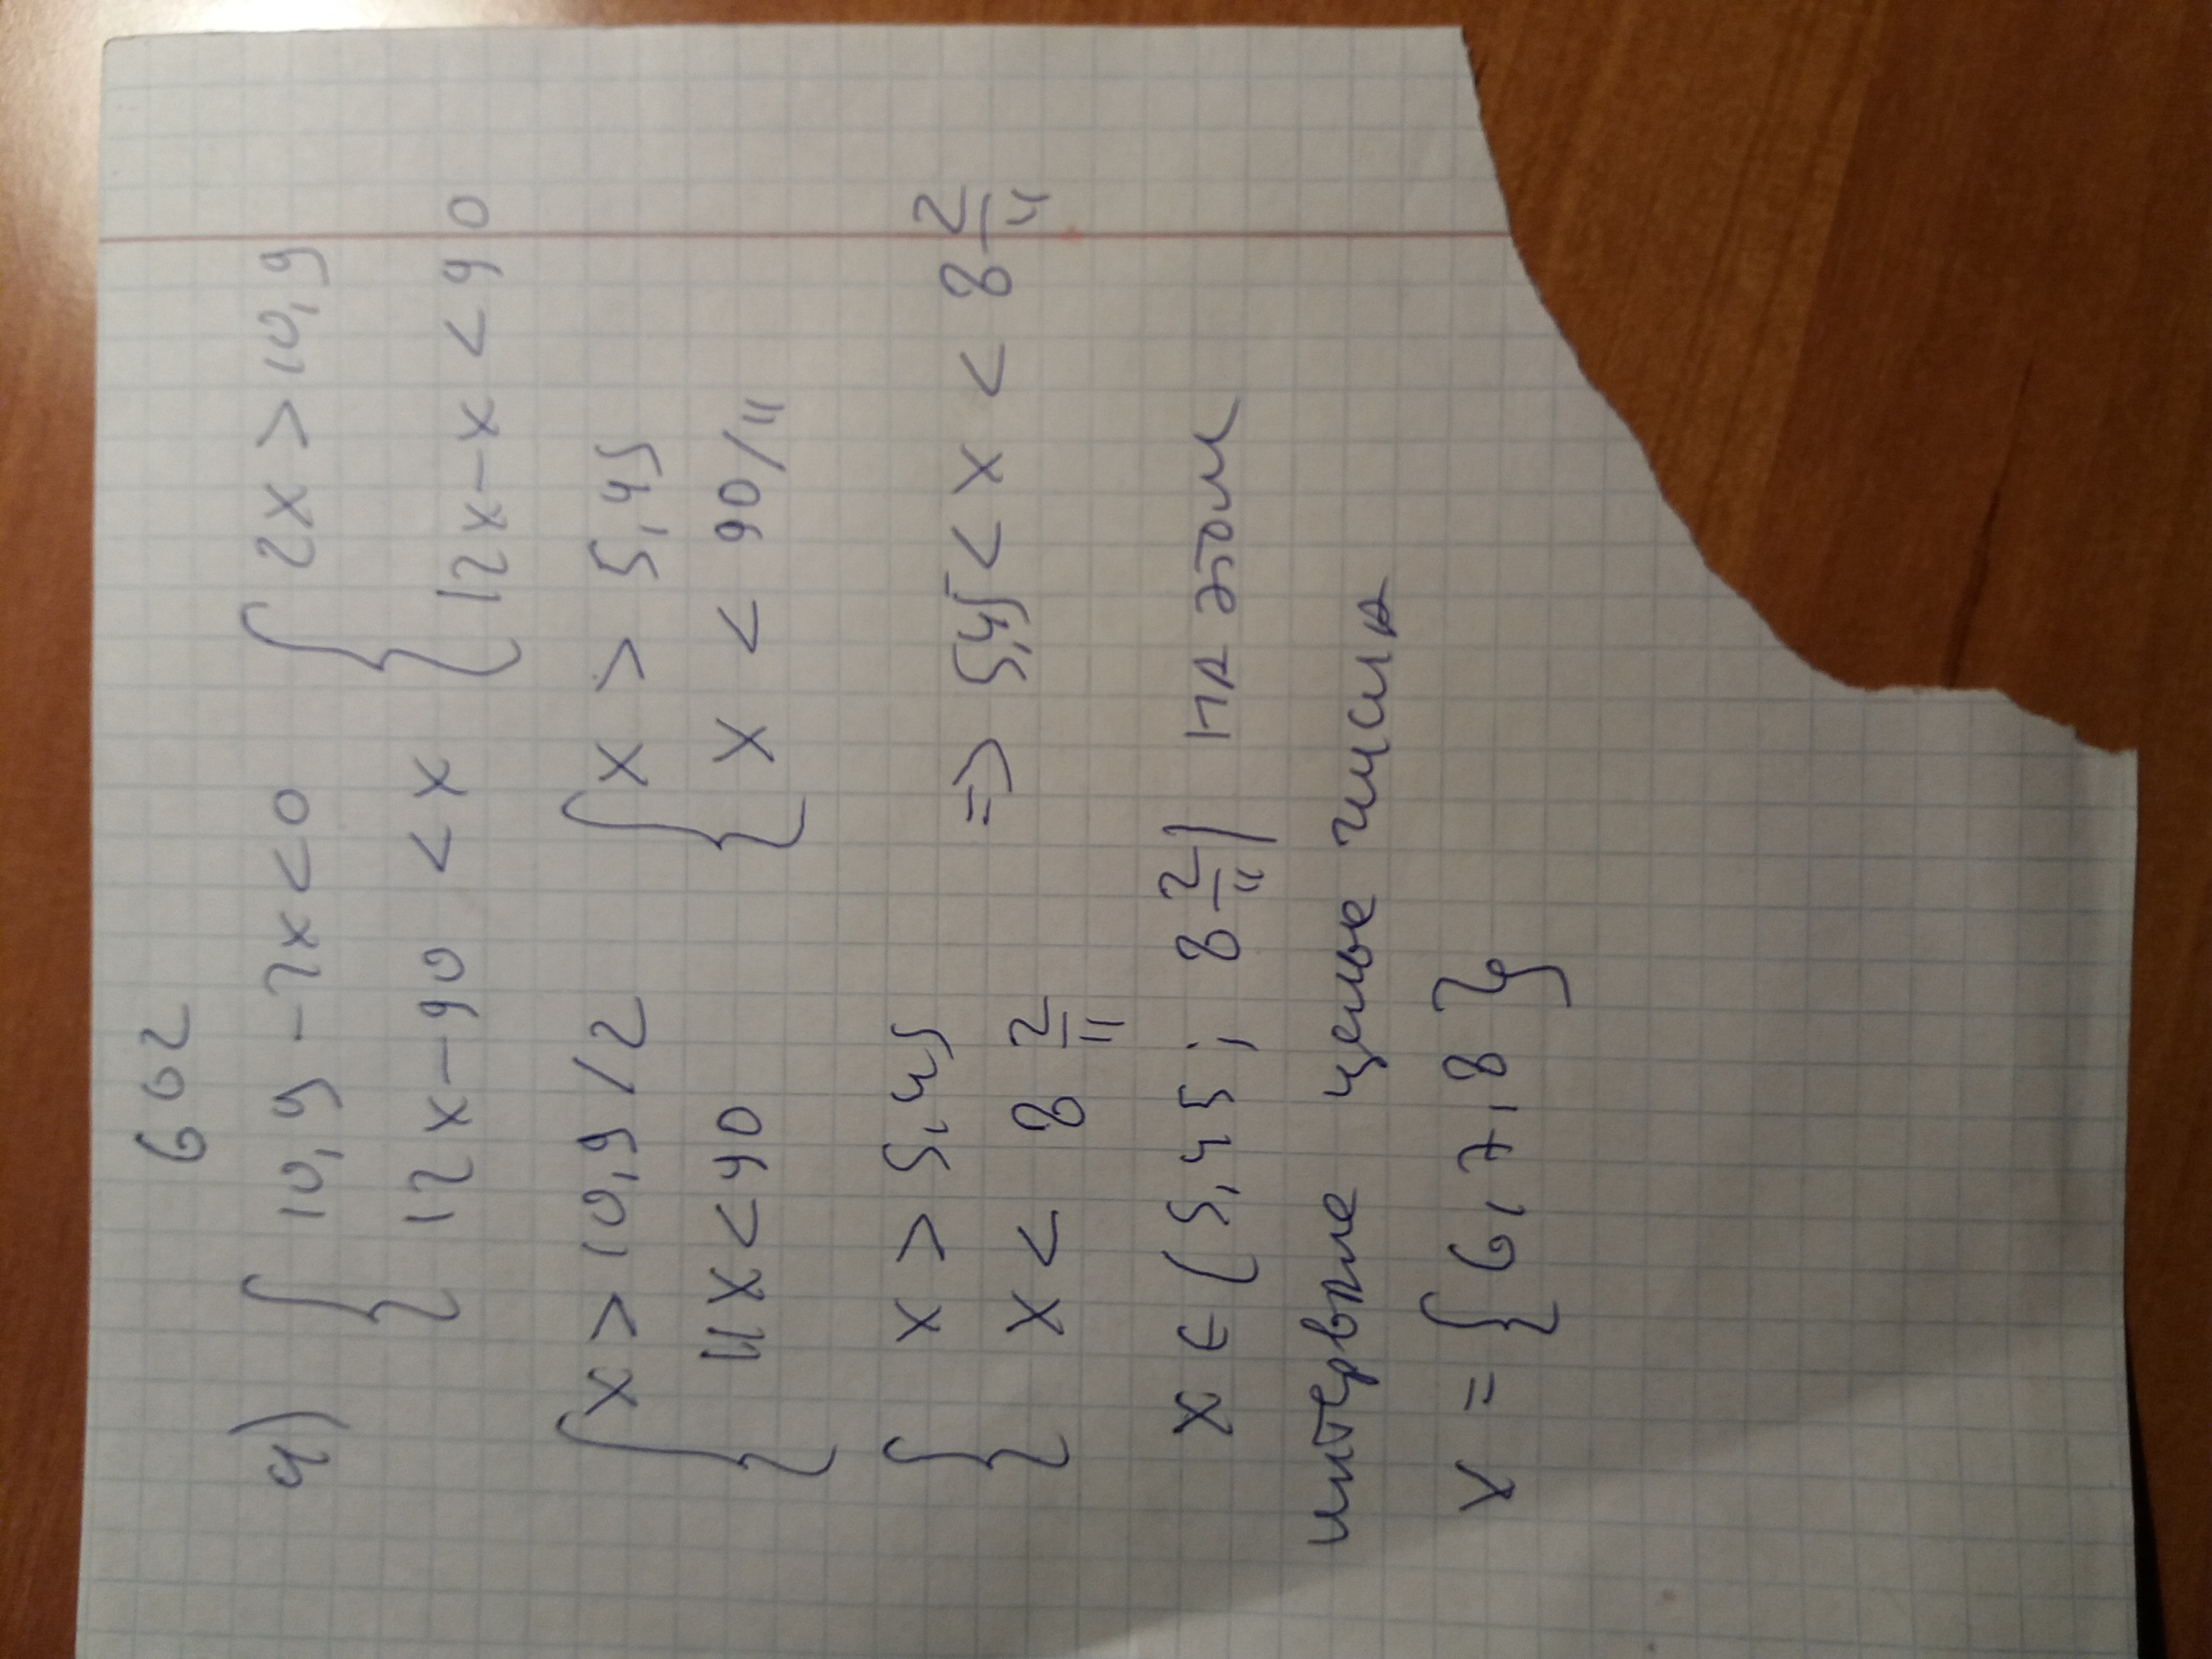 602
4) { 10,9 - 2x < 0 { 2x > 10,9
12x - 90 < x 12x - x < 90
{ x > 10,9 / 2 { x > 5,45
11x < 90 x < 90/11
{ x > 5,45
x < 8 2/11 => 5,45 < x < 8 2/11
x ∈ (5,45 ; 8 2/11) на этом
интервале целые числа
x = {6, 7, 8}